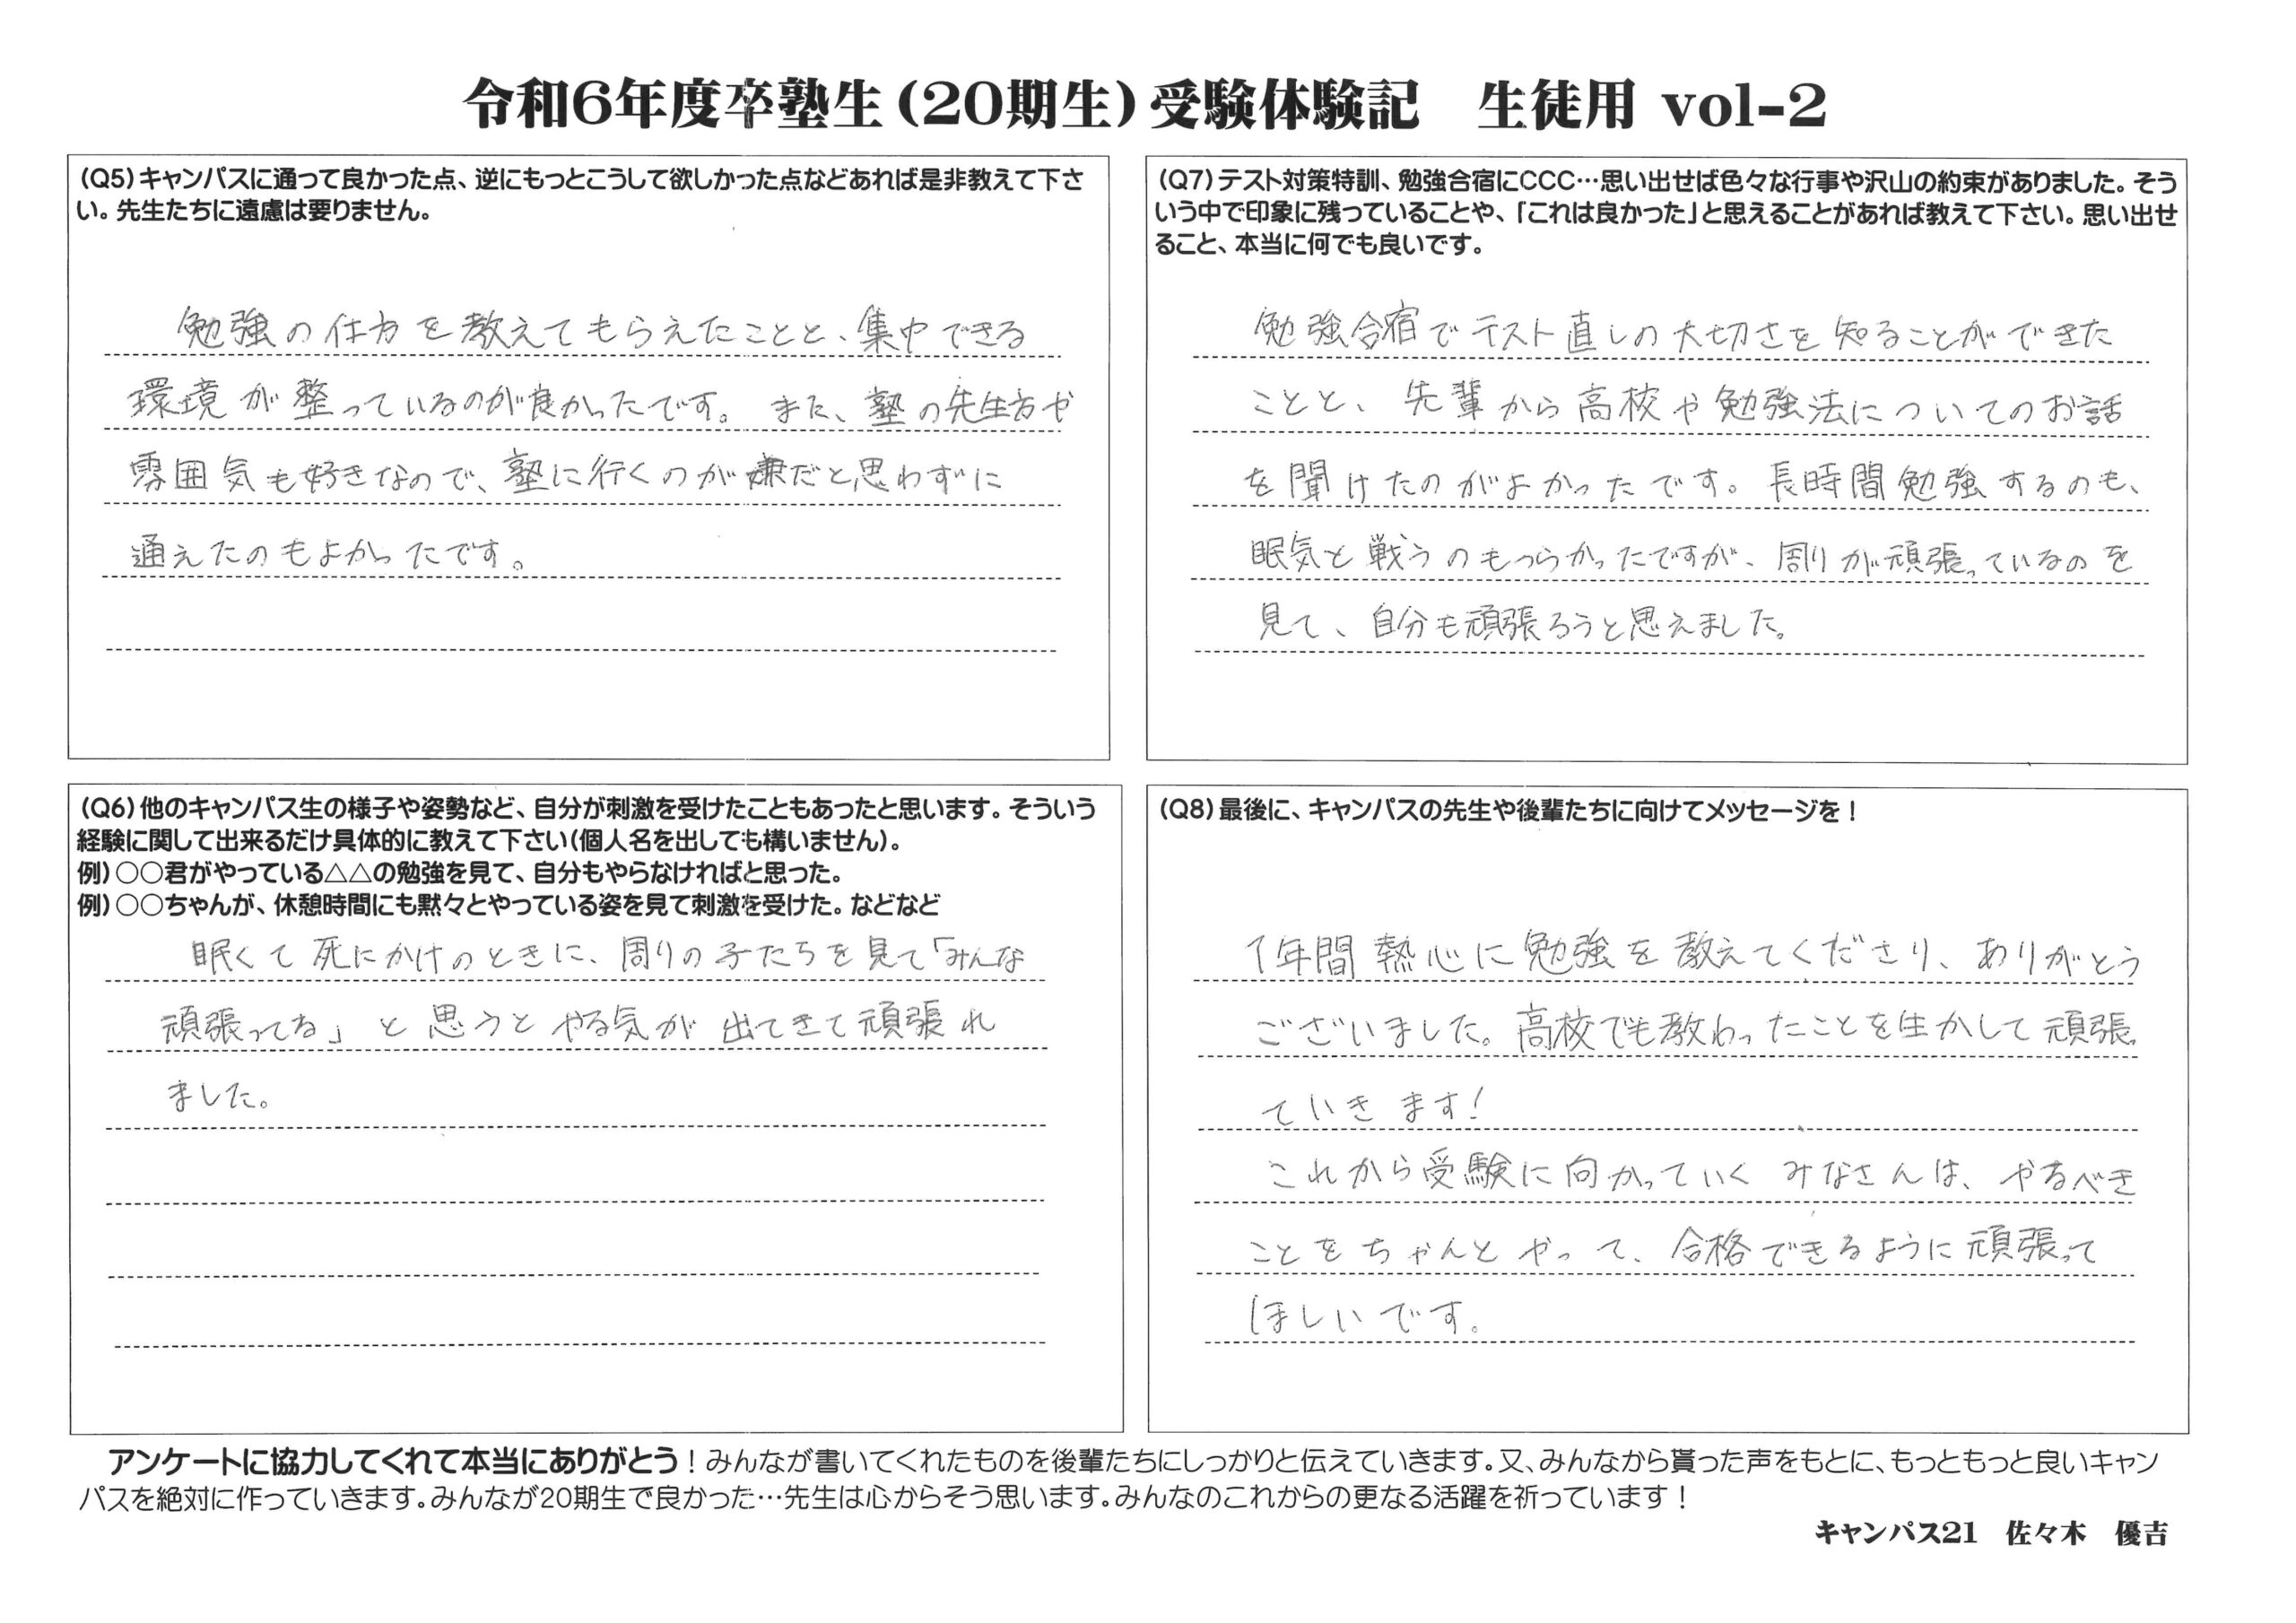 令和6年度卒塾生(20期生)受験体験記　生徒用 vol-2
(Q5)キャンパスに通って良かった点、逆にもっとこうして欲しかった点などあれば是非教えて下さ
い。先生たちに遠慮は要りません。
勉強の仕方を教えてもらえたことと、集中できる
環境が整っているのが良かったです。また、塾の先生方や
雰囲気も好きなので、塾に行くのが嫌だと思わずに
通えたのもよかったです。
(Q6)他のキャンパス生の様子や姿勢など、自分が刺激を受けたこともあったと思います。そういう
経験に関して出来るだけ具体的に教えて下さい(個人名を出しても構いません)。
例)○○君がやっている△△の勉強を見て、自分もやらなければと思った。
例)○○ちゃんが、休憩時間にも黙々とやっている姿を見て刺激を受けた。などなど
眠くて死にかけのときに、周りの子たちを見て「みんな
頑張ってる」と思うとやる気が出てきて頑張れ
ました。
(Q7)テスト対策特訓、勉強合宿にCCC…思い出せば色々な行事や沢山の約束がありました。そう
いう中で印象に残っていることや、「これは良かった」と思えることがあれば教えて下さい。思い出せ
ること、本当に何でも良いです。
勉強合宿でテスト直しの大切さを知ることができた
ことと、先輩から高校や勉強法についてのお話
を聞けたのがよかったです。長時間勉強するのも、
眠気と戦うのもつらかったですが、周りが頑張っているのを
見て、自分も頑張ろうと思えました。
(Q8)最後に、キャンパスの先生や後輩たちに向けてメッセージを！
1年間熱心に勉強を教えてくださり、ありがとう
ございました。高校でも教わったことを生かして頑張っ
ていきます！
これから受験に向かっていくみなさんは、やるべき
ことをちゃんとやって、合格できるように頑張って
ほしいです。
アンケートに協力してくれて本当にありがとう！みんなが書いてくれたものを後輩たちにしっかりと伝えていきます。又、みんなから貰った声をもとに、もっともっと良いキャン
パスを絶対に作っていきます。みんなが20期生で良かった…先生は心からそう思います。みんなのこれからの更なる活躍を祈っています！
キャンパス21　佐々木　優吉